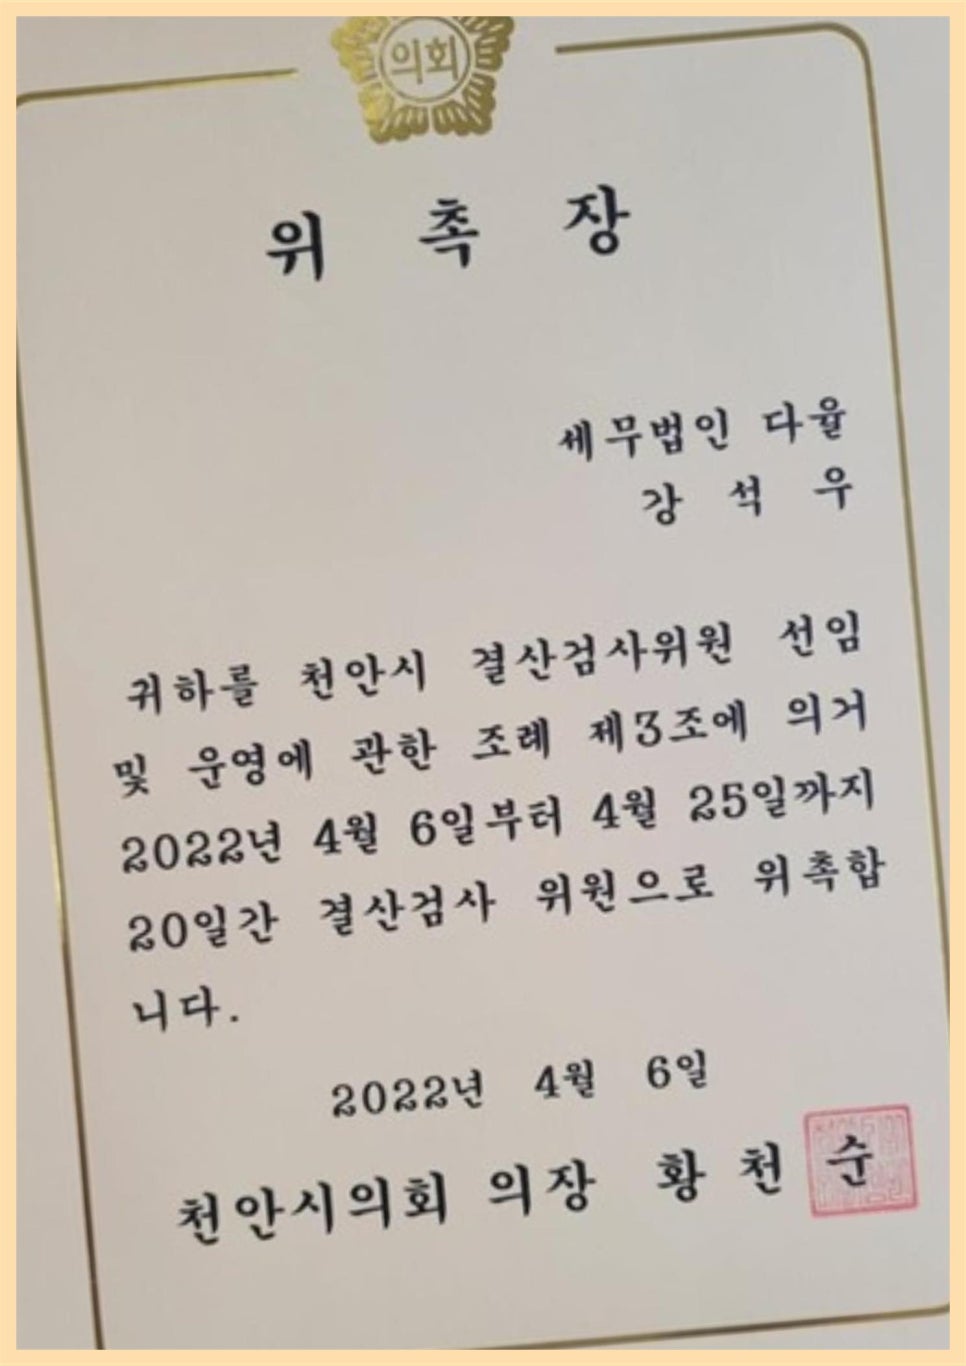 의회
위 촉 장
세무법인 다율
강 석 우
귀하를 천안시 결산검사위원 선임
및 운영에 관한 조례 제3조에 의거
2022년 4월 6일부터 4월 25일까지
20일간 결산검사 위원으로 위촉합
니다.
2022년 4월 6일
천안시의회 의장 황 천 순